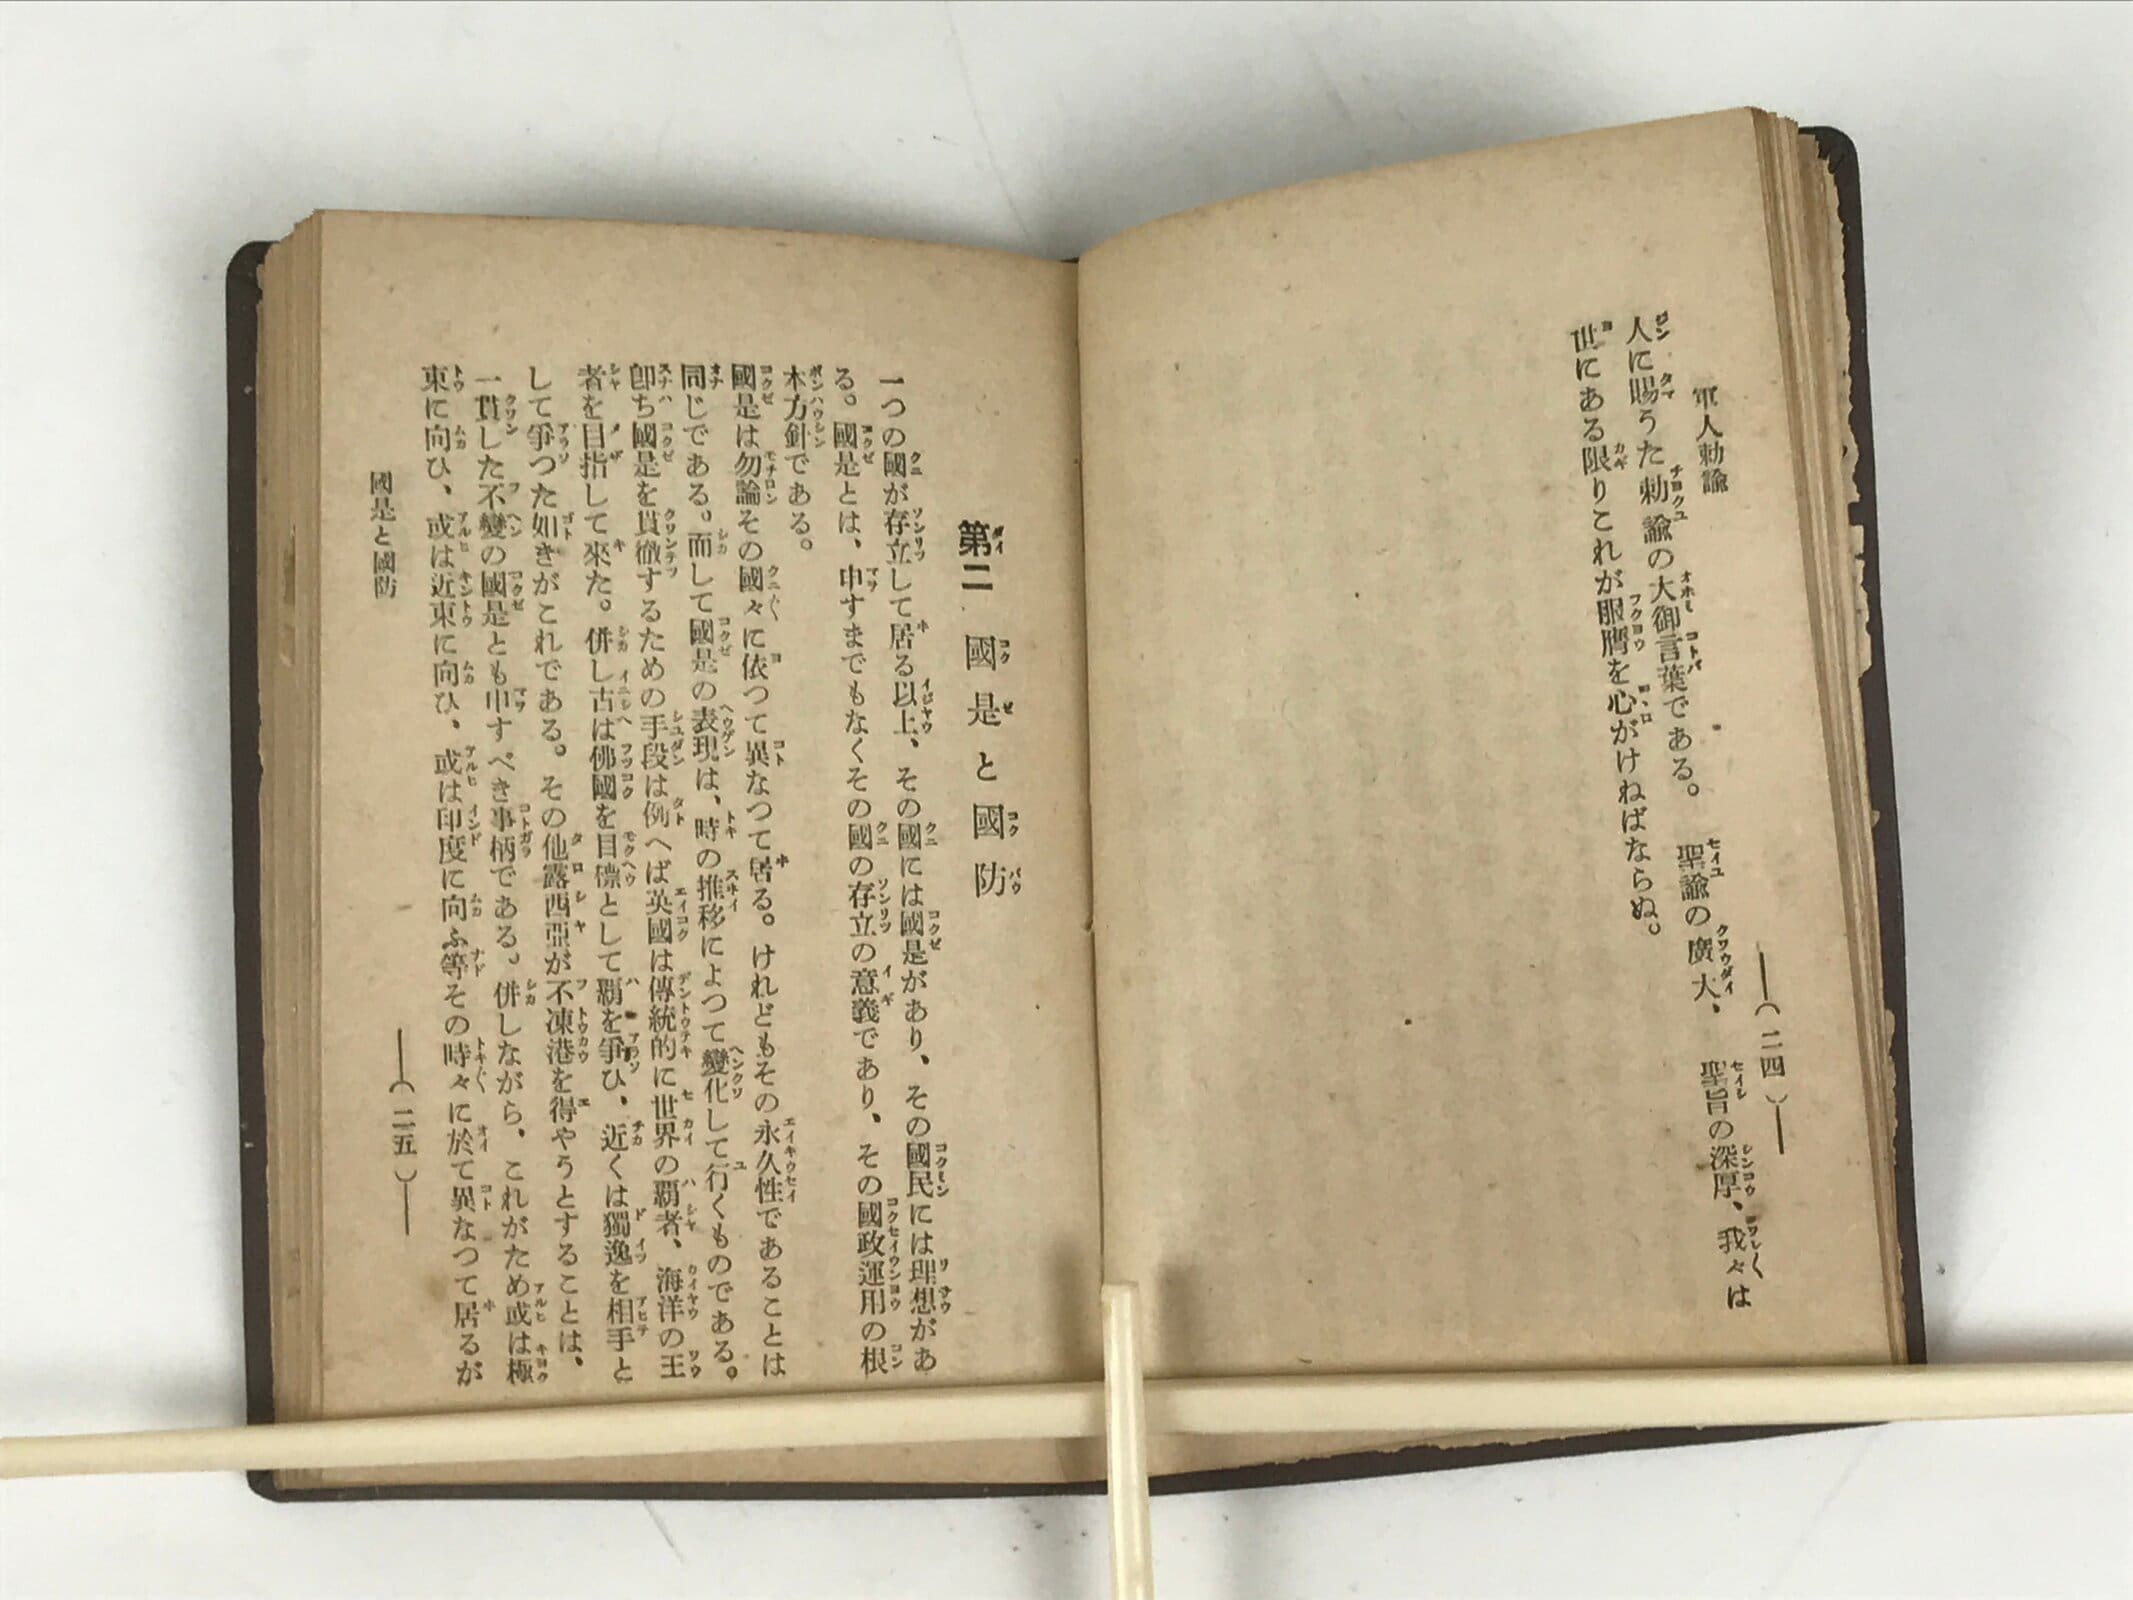 軍人勅諭
―（二四）―
人に賜うた勅諭の大御言葉である。聖諭の廣大、聖旨の深厚、我々は
世にある限りこれが服膺を心がけねばならぬ。
第二 國是と國防
一つの國が存立して居る以上、その國には國是があり、その國民には理想があ
る。國是とは、申すまでもなくその國の存立の意義であり、その國政運用の根
本方針である。
國是は勿論その國々に依つて異なつて居る。けれどもその永久性であることは
同じである。而して國是の表現は、時の推移によつて變化して行くものである。
卽ち國是を貫徹するための手段は例へば英國は傳統的に世界の覇者、海洋の王
者を目指して來た。併し古は佛國を目標として覇を爭ひ、近くは獨逸を相手と
して爭つた如きがこれである。その他露西亞が不凍港を得やうとすることは、
一貫した不變の國是とも申すべき事柄である。併しながら、これがため或は極
東に向ひ、或は近東に向ひ、或は印度に向ふ等その時々に於て異なつて居るが
國是と國防
―（二五）―